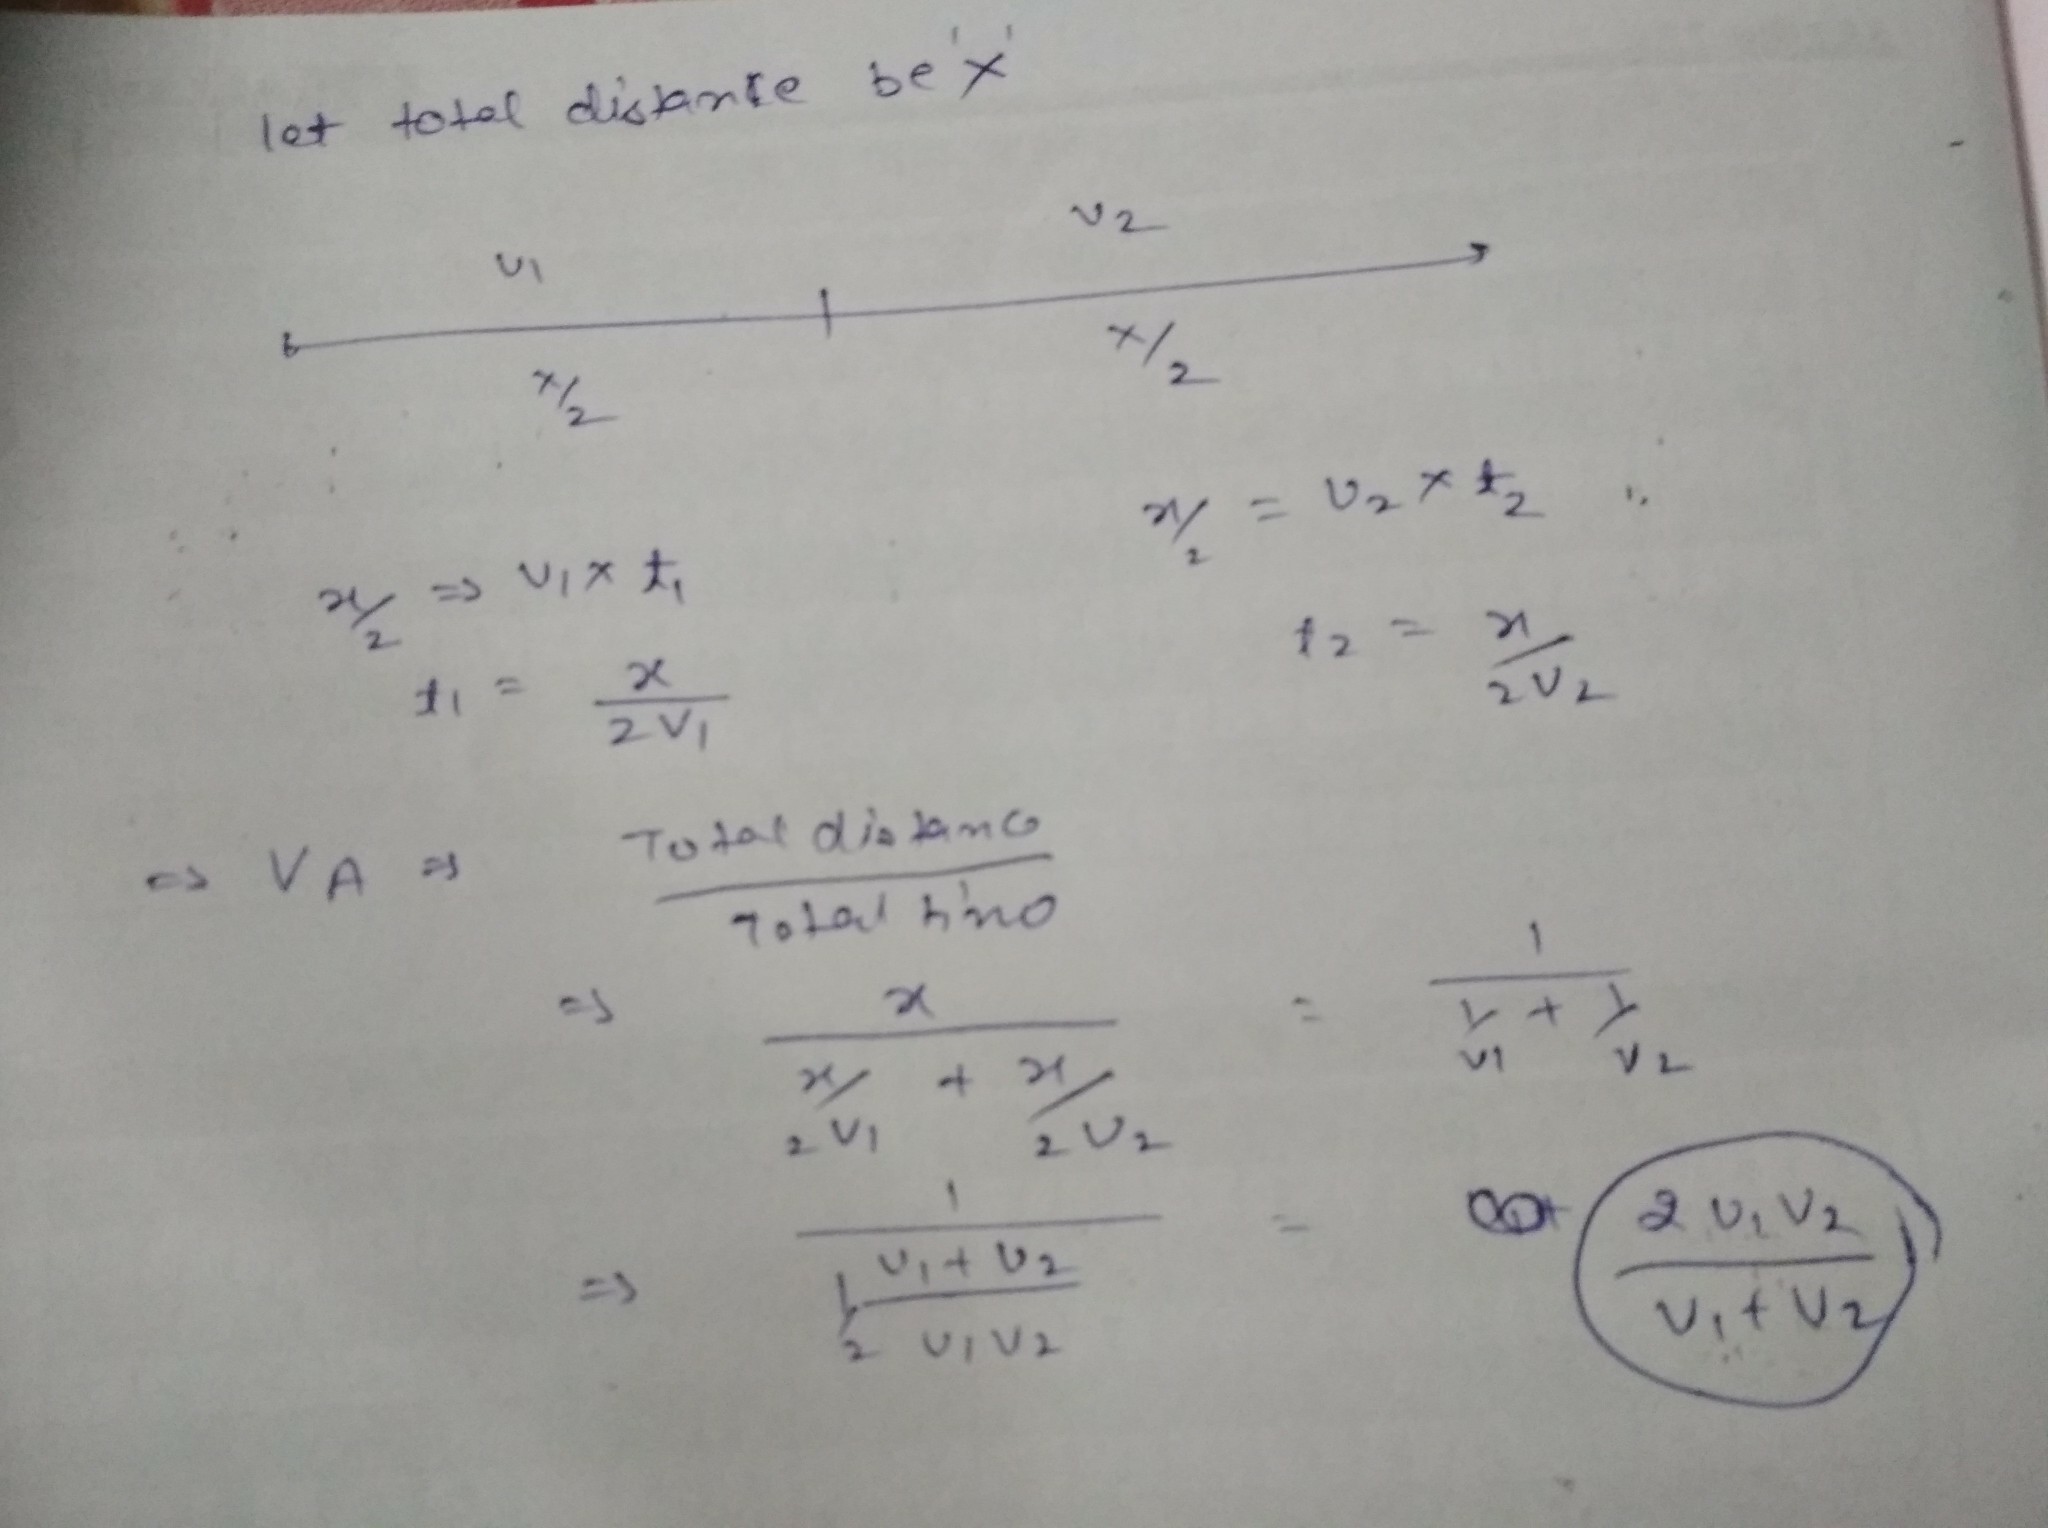 let total distance be 'x'
v1 v2
x/2 x/2
x/2 => v1 x t1 x/2 = v2 x t2
t1 = x/2v1 t2 = x/2v2
=> VA => Total distance / Total time
=> x / (x/2v1 + x/2v2) = 1 / (1/v1 + 1/v2)
=> 1 / (1/2 (v1+v2)/(v1v2)) = 2v1v2 / (v1+v2)